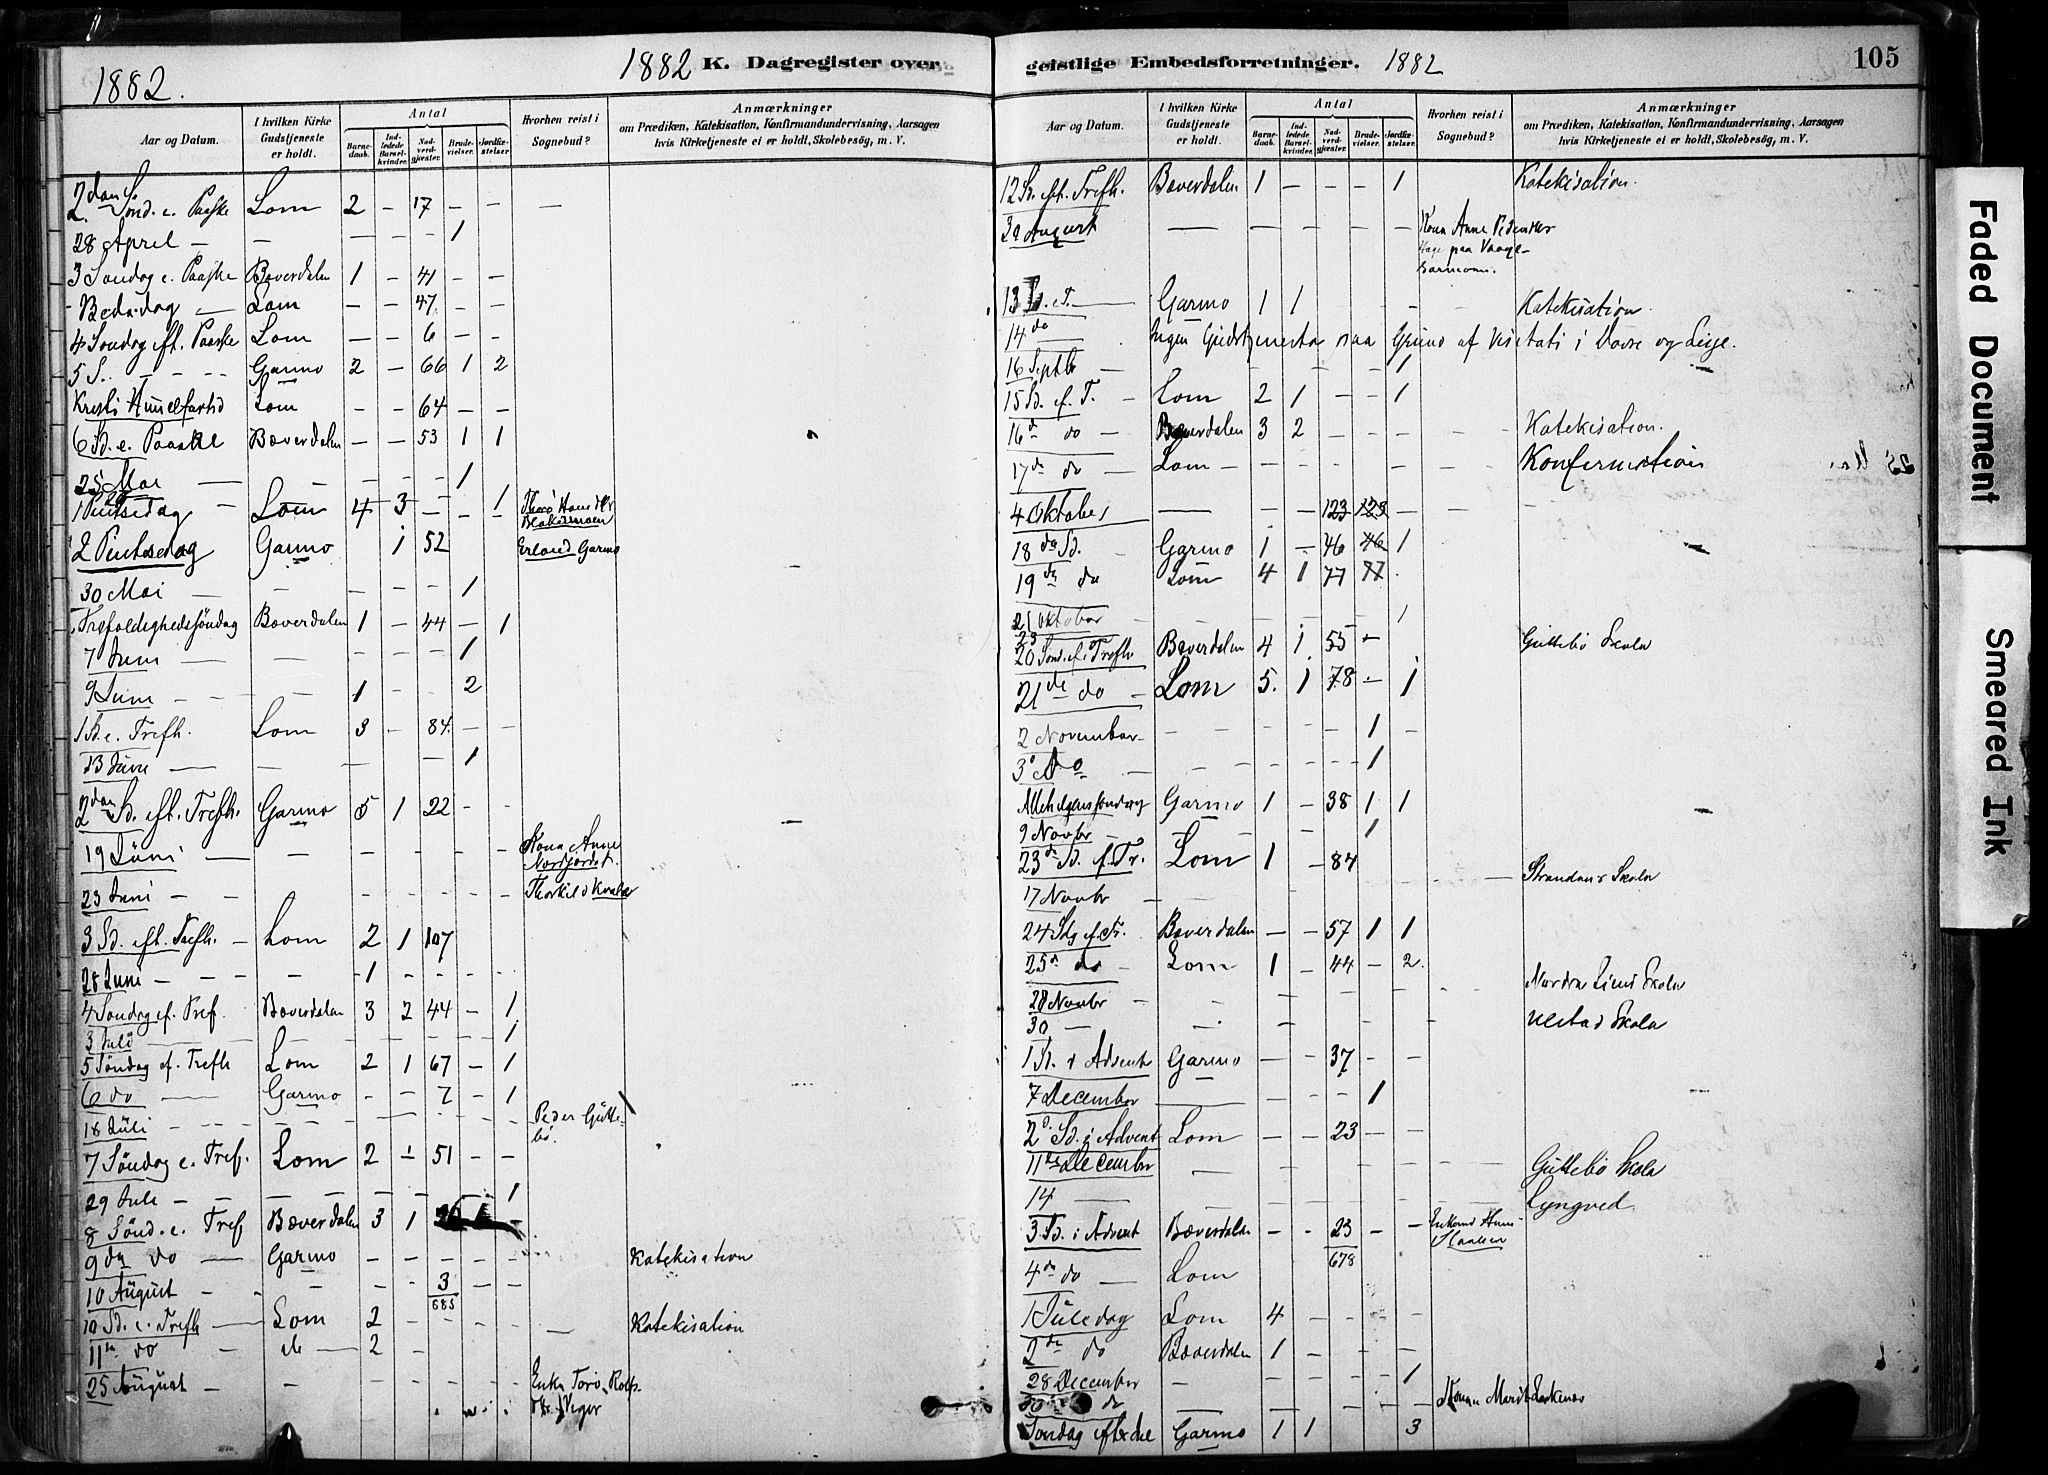 1882.
1882 K. Dagregister over
Aar og Datum. I hvilken Kirke Gudstjeneste er holdt. Antal Barnedaab. Indledede Barselkvinder. Nadverdgjester. Brudevielser. Jordfæstelser. Hvorhen reist i Sognebud? Anmærkninger om Prædiken, Katekisation, Konfirmandundervisning, Aarsagen hvis Kirketjeneste ei er holdt, Skolebesög, m. V.
2den Sönd. e. Paaske Lom 2 - 17 - - -
28 April - - - - - 1
3 Søndag e. Paaske Bæverdalen 1 - 41 - -
- Bededag - Lom - - 47 - -
4 Søndag eft. Paaske Lom - - 6 - -
5 S. - - - Garmo 2 - 66 1 2
Kristi Himmelfartsd Lom - - 64 - -
6 Sd. e. Paaske Bæverdalen - - 53 1 1
25 Mai - - - - - 1
1 Pintsedag Lom 4 3 - - 1
2 Pintsedag Garmo 1 52 Erland Garmo
30 Mai - - - - - 1
Trefoldighedssöndag Bæverdalen 1 - 44 - 1
7 Juni - - - - - 1
9 Juni - - - 1 - - 2
1 Sd. e. Trefh. Lom 3 - 84 - -
13 Juni - - - - 1
2den Sd. eft. Trefh. Garmo 5 1 22 - -
19 Juni - - - - - - - Kona Anne
23 Juni - - - - - - - Thorkild Kvaler
3 Sd. eft. Trefh. - Lom 2 1 107
28 Juni - - - - 1 - - - -
4 Søndag ef. Tref. Bæverdalen 3 2 44 - 1
3 Juli - - - - - - 1
5 Søndag ef. Trefh Lom 2 1 67 - 1
6 do - Garmo - - 7 - 1
18 Juli - - - - - - - Peder Gutte-
bö.
7 Söndag e. Tref. Lom 2 1 51 - -
29 Juli - - - - - - - 1
8 Sönd. e. Tref Bæverdalen 3 1
9 de do - Garmo - - - - - Katekisation
10 August - - - - 3 - -
685
10 Sd. e. Trefh - Lom 2 - - - - - Katekisation
11te do - do - 2 -
25 August - - - - - - -
geistlige Embedsforretninger. 1882
105
Aar og Datum. I hvilken Kirke Gudstjeneste er holdt. Antal Barnedaab. Indledede Barselkvinder. Nadverdgjester. Brudevielser. Jordfæstelser. Hvorhen reist i Sognebud? Anmærkninger om Prædiken, Katekisation, Konfirmandundervisning, Aarsagen hvis Kirketjeneste ei er holdt, Skolebesög, m. V.
12 Sd. eft. Trefh. Bæverdalen 1 - - - 1 Katekisation.
August - - - - - - Kona Anne
paa Vaage-
13 S. e. T. - Garmo 1 1 - - Katekisation
14 do - Ingen Gudstjeneste paa Grund af Visitats i Dovre og Lesje.
16 Septbr - - - - - 1
15 Sd. ef. T. - Lom 2 1 - - 1
16 de do - Bæverdalen 3 2 - - - - - Katekisation.
17 de do - Lom - - - - - - - Konfirmation
4 Oktober - - - 123 123 - -
18 de Sd. - Garmo 1 - 46 46 1
19 de do Lom 4 1 77 77
21 Oktober - - - - - - 1
23
20 Sönd. ef. Trefh Bæverdalen 4 1 55 - Guttebö Skole
21 de do - Lom 5. 1 78 - 1
2 November - - - - - 1 -
3 do - - - - - 1
Allehelgenssöndag Garmo 1 - 38 1 1
9 Novbr - - - - - 1
23 de Sd. ef. Tr. Lom 1 - 84
Skole
17 Novbr - -
24 Sdg ef. Tr. Bæverdalen - - 57 1 1
25 de do - Lom 1 - 44 - 2.
28 Novbr - - - - - - - - Skole
30 - - - - - - - - Ulstad Skole
1 Sd. i Advent Garmo - - 37 - -
7 December - - - - 1
2d. Sd. i Advent Lom - - 23 - -
11te December - Guttebö Skole
14 - - - - - - - - - Lyngved.
3. Sd. i Advent Bæverdalen - - 23 - -
678
4 de do - Lom
1 Juledag Lom 4 - - - -
2 de do Bæverdalen 1 - - -
28 December - - - - - 1
30 do - - - - - -
Söndag efter do Garmo 1 1 3
Faded Document
Smeared Ink